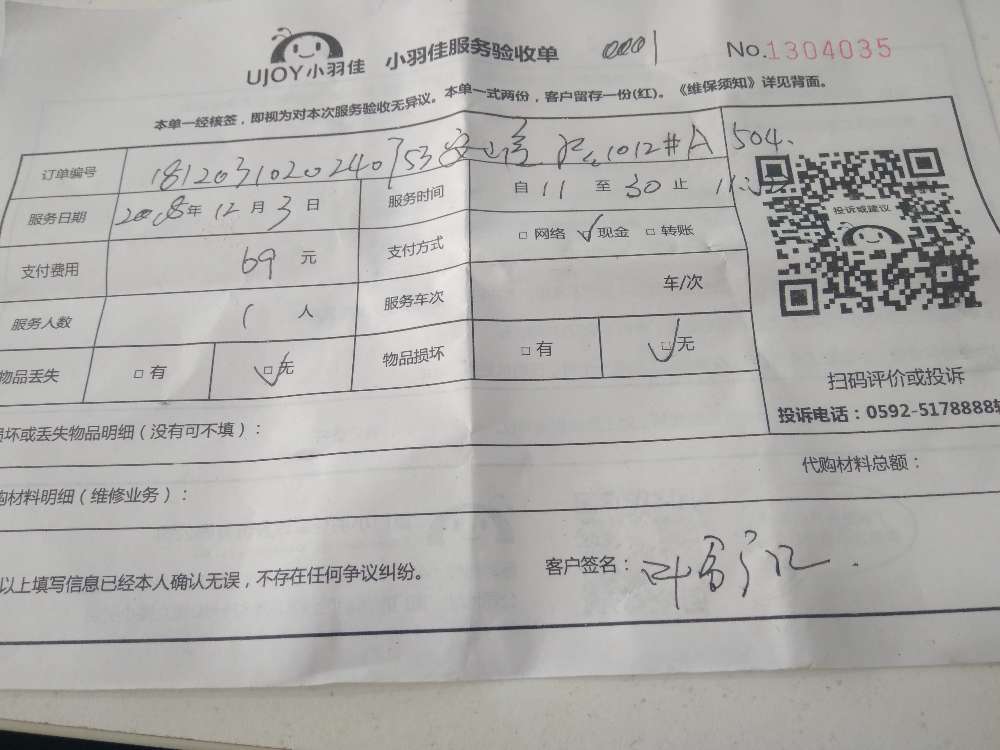 UJOY小羽佳 小羽佳服务验收单 0001 No.1304035
本单一经核签，即视为对本次服务验收无异议。本单一式两份，客户留存一份(红)。《维保须知》详见背面。
订单编号 1812031020240753 1012#A 504.
服务日期 2018年12月3日 服务时间 自 11 至 30 止
支付费用 69 元 支付方式 □ 网络 ✓ 现金 □ 转账
服务人数 1 人 服务车次 车/次
物品丢失 □ 有 ☑ 无 物品损坏 □ 有 ☑ 无
投诉或建议
扫码评价或投诉
投诉电话：0592-5178888转
坏或丢失物品明细（没有可不填）：
购材料明细（维修业务）： 代购材料总额：
以上填写信息已经本人确认无误，不存在任何争议纠纷。 客户签名：